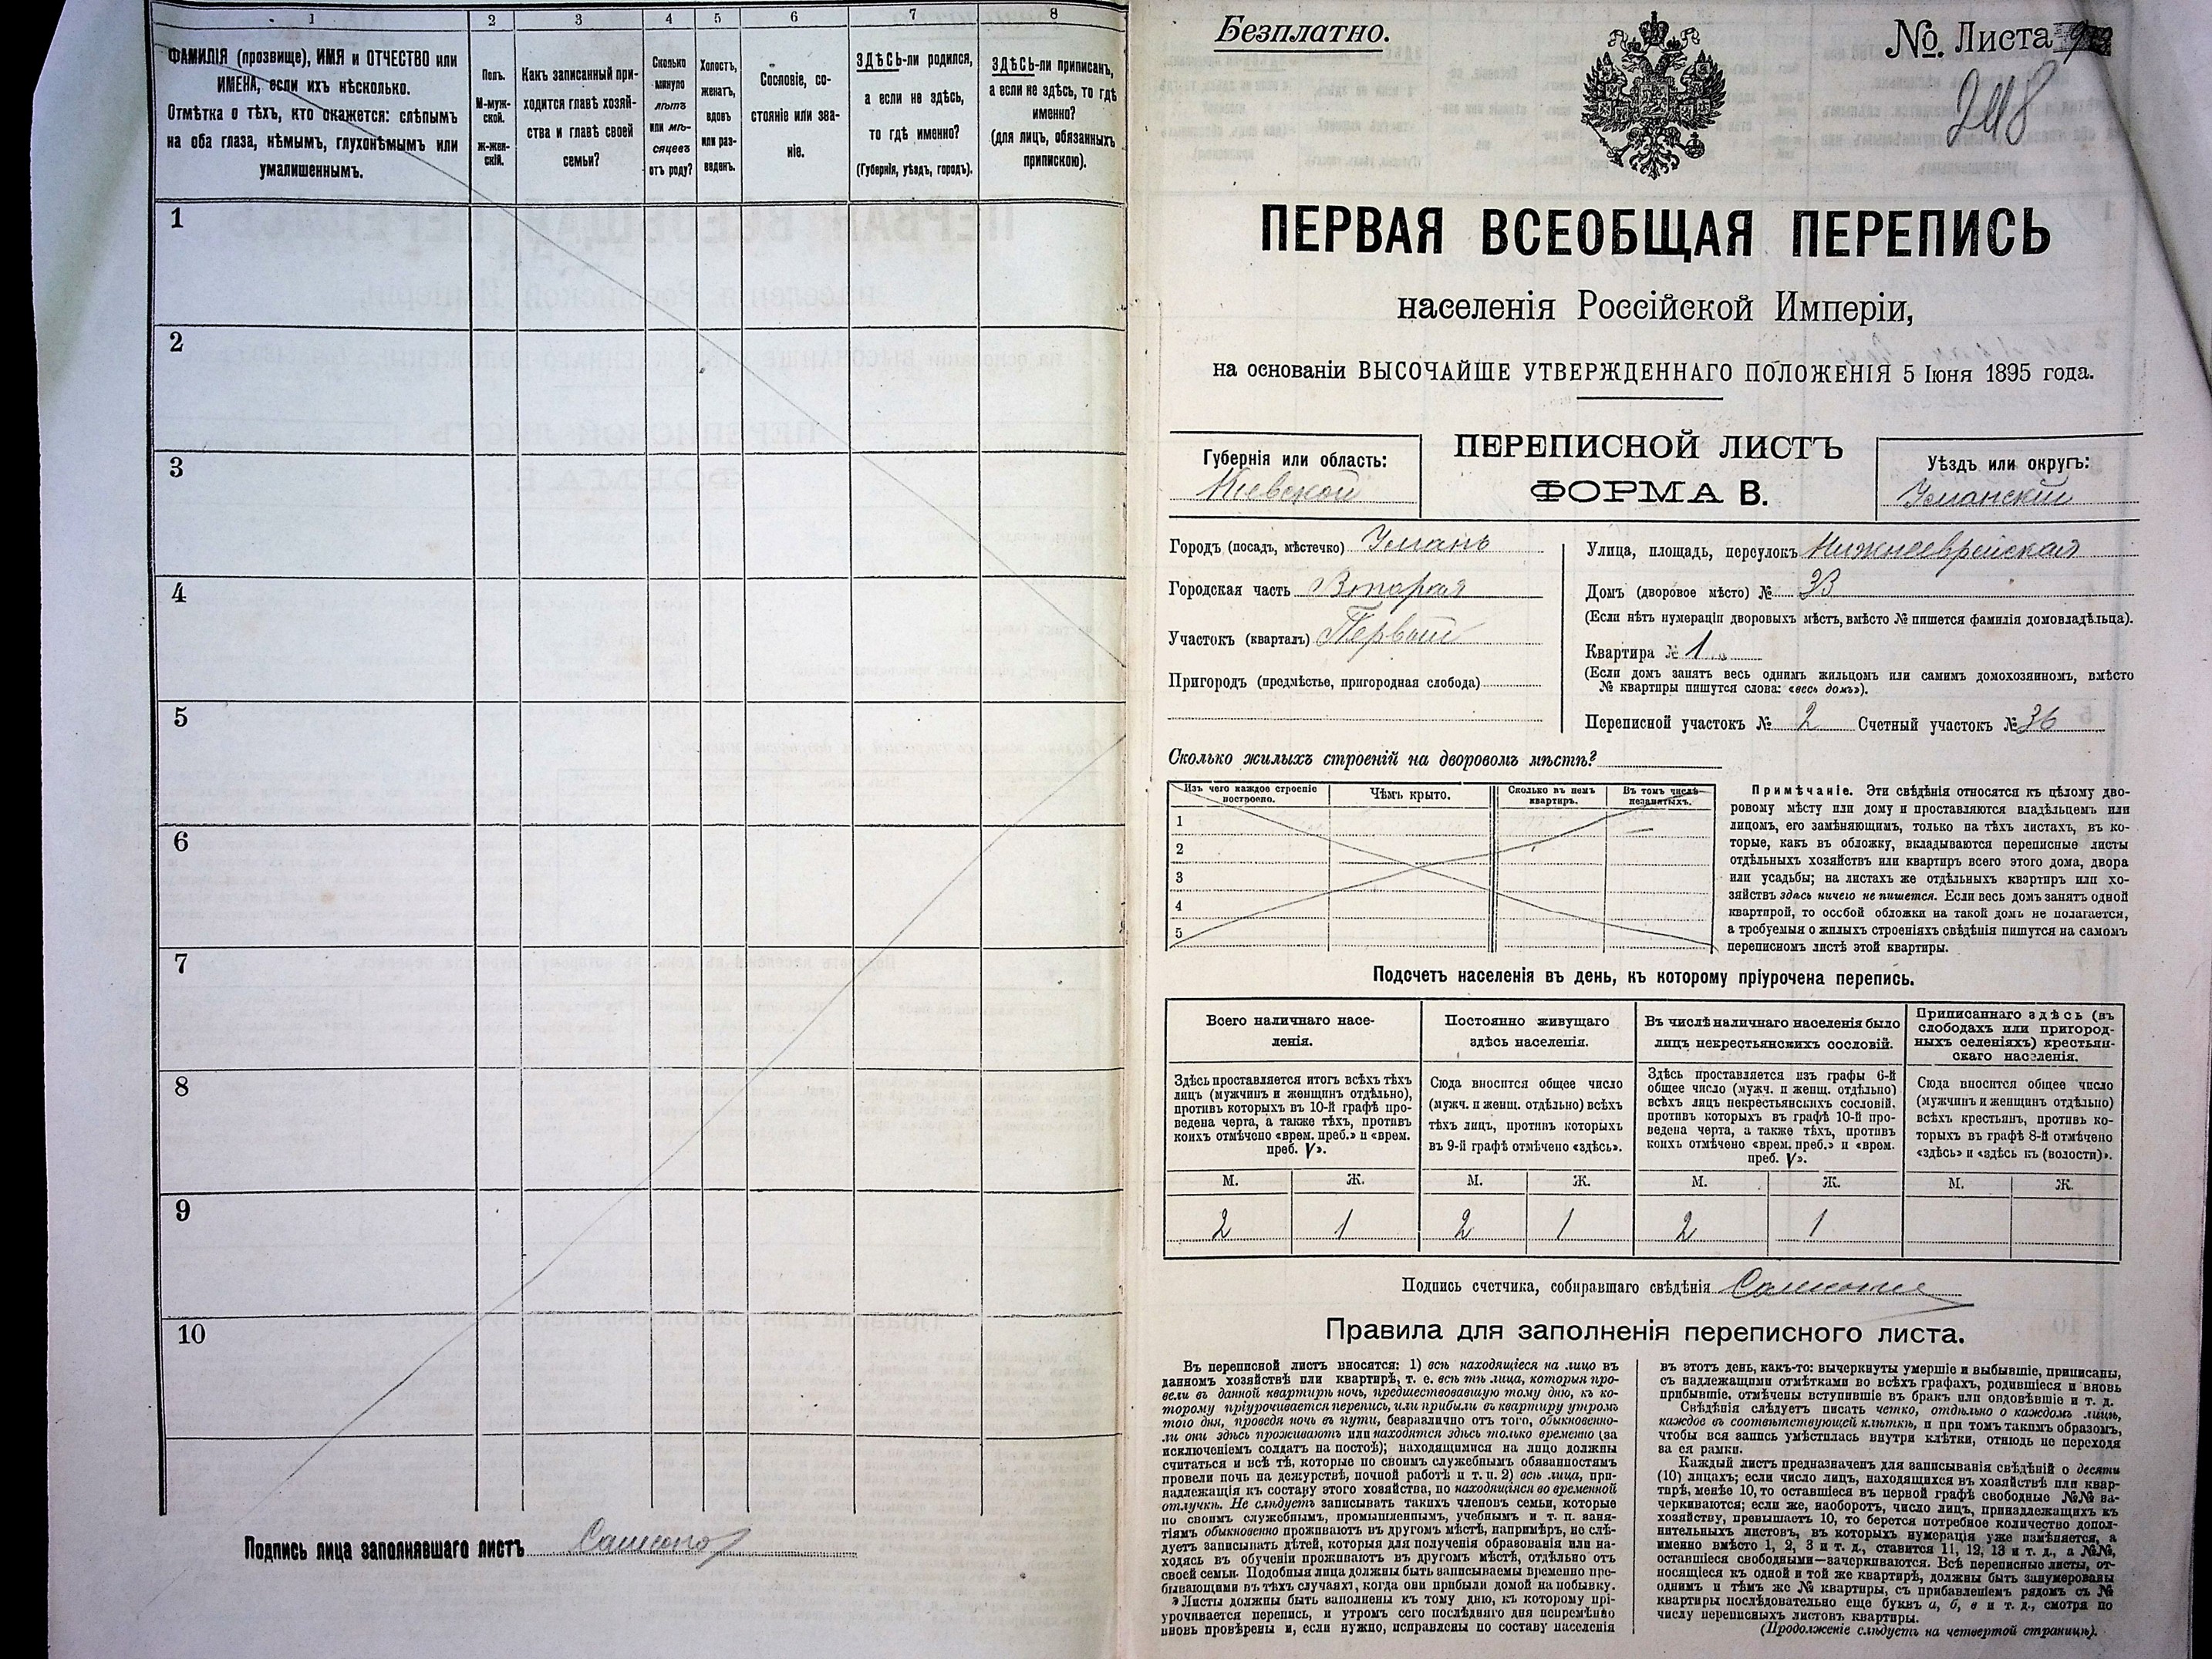 1 2 3 4 5 6 7 8
ФАМИЛІЯ (прозвище), ИМЯ и ОТЧЕСТВО или
ИМЕНА, если ихъ нѣсколько.
Отмѣтка о тѣхъ, кто окажется: слѣпымъ
на оба глаза, нѣмымъ, глухонѣмымъ или
умалишеннымъ.
Полъ.
М-муж-
ской.
ж-жен-
скій.
Какъ записанный при-
ходится главѣ хозяй-
ства и главѣ своей
семьи?
Сколько
минуло
лѣтъ
или мѣ-
сяцевъ
отъ роду?
Холостъ,
женатъ,
вдовъ
или раз-
веденъ.
Сословіе, со-
стояніе или зва-
ніе.
ЗДѢСЬ-ли родился,
а если не здѣсь,
то гдѣ именно?
(Губернія, уѣздъ, городъ).
ЗДѢСЬ-ли приписанъ,
а если не здѣсь, то гдѣ
именно?
(для лицъ, обязанныхъ
припискою).
1
2
3
4
5
6
7
8
9
10
Подпись лица заполнявшаго листъ
Безплатно.
№. Листа
248
ПЕРВАЯ ВСЕОБЩАЯ ПЕРЕПИСЬ
населенія Россійской Имперіи,
на основаніи ВЫСОЧАЙШЕ УТВЕРЖДЕННАГО ПОЛОЖЕНІЯ 5 Іюня 1895 года.
Губернія или область:
Кіевской
ПЕРЕПИСНОЙ ЛИСТЪ
ФОРМА В.
Уѣздъ или округъ:
Уманскій
Городъ (посадъ, мѣстечко) Умань
Городская часть Вторая
Участокъ (кварталъ) Первый
Пригородъ (предмѣстье, пригородная слобода)
Улица, площадь, переулокъ Нижнееврейская
Домъ (дворовое мѣсто) № 33
(Если нѣтъ нумераціи дворовыхъ мѣстъ, вмѣсто № пишется фамилія домовладѣльца).
Квартира № 1
(Если домъ занятъ весь однимъ жильцомъ или самимъ домохозяиномъ, вмѣсто
№ квартиры пишутся слова: «весь домъ»).
Переписной участокъ № 2 Счетный участокъ № 36
Сколько жилыхъ строеній на дворовомъ мѣстѣ?
Изъ чего каждое строеніе
построено.
Чѣмъ крыто.
Сколько въ немъ
квартиръ.
Въ томъ числѣ
незанятыхъ.
1
2
3
4
5
Примѣчаніе. Эти свѣдѣнія относятся къ цѣлому дво-
ровому мѣсту или дому и проставляются владѣльцемъ или
лицомъ, его замѣняющимъ, только на тѣхъ листахъ, въ ко-
торые, какъ въ обложку, вкладываются переписные листы
отдѣльныхъ хозяйствъ или квартиръ всего этого дома, двора
или усадьбы; на листахъ же отдѣльныхъ квартиръ или хо-
зяйствъ здѣсь ничего не пишется. Если весь домъ занятъ одной
квартирой, то особой обложки на такой домъ не полагается,
а требуемыя о жилыхъ строеніяхъ свѣдѣнія пишутся на самомъ
переписномъ листѣ этой квартиры.
Подсчетъ населенія въ день, къ которому пріурочена перепись.
Всего наличнаго насе-
ленія.
Здѣсь проставляется итогъ всѣхъ тѣхъ
лицъ (мужчинъ и женщинъ отдѣльно),
противъ которыхъ въ 10-й графѣ про-
ведена черта, а также тѣхъ, противъ
коихъ отмѣчено «врем. преб.» и «врем.
преб. V».
Постоянно живущаго
здѣсь населенія.
Сюда вносится общее число
(мужч. и женщ. отдѣльно) всѣхъ
тѣхъ лицъ, противъ которыхъ
въ 9-й графѣ отмѣчено «здѣсь».
Въ числѣ наличнаго населенія было
лицъ некрестьянскихъ сословій.
Здѣсь проставляется изъ графы 6-й
общее число (мужч. и женщ. отдѣльно)
всѣхъ лицъ некрестьянскихъ сословій,
противъ которыхъ въ графѣ 10-й про-
ведена черта, а также тѣхъ, противъ
коихъ отмѣчено «врем. преб.» и «врем.
преб. V».
Приписаннаго здѣсь (въ
слободахъ или пригород-
ныхъ селеніяхъ) крестьян-
скаго населенія.
Сюда вносится общее число
(мужчинъ и женщинъ отдѣльно)
всѣхъ крестьянъ, противъ ко-
торыхъ въ графѣ 8-й отмѣчено
«здѣсь» и «здѣсь къ (волости)».
М. Ж. М. Ж. М. Ж. М. Ж.
2 1 2 1 2 1
Подпись счетчика, собиравшаго свѣдѣнія
Правила для заполненія переписного листа.
Въ переписной листъ вносятся: 1) всѣ находящіеся на лицо въ
данномъ хозяйствѣ или квартирѣ, т. е. всѣ тѣ лица, которыя про-
вели въ данной квартирѣ ночь, предшествовавшую тому дню, къ ко-
торому пріурочивается перепись, или прибыли въ квартиру утромъ
того дня, проведя ночь въ пути, безразлично отъ того, обыкновенно-
ли они здѣсь проживаютъ или находятся здѣсь только временно (за
исключеніемъ солдатъ на постоѣ); находящимися на лицо должны
считаться и всѣ тѣ, которые по своимъ служебнымъ обязанностямъ
провели ночь на дежурствѣ, ночной работѣ и т. п. 2) всѣ лица, при-
надлежащія къ составу этого хозяйства, но находящіяся во временной
отлучкѣ. Не слѣдуетъ записывать такихъ членовъ семьи, которые
по своимъ служебнымъ, промышленнымъ, учебнымъ и т. п. заня-
тіямъ обыкновенно проживаютъ въ другомъ мѣстѣ, напримѣръ, не слѣ-
дуетъ записывать дѣтей, которыя для полученія образованія или на-
ходясь въ обученіи проживаютъ въ другомъ мѣстѣ, отдѣльно отъ
своей семьи. Подобныя лица должны быть записываемы временно пре-
бывающими въ тѣхъ случаяхъ, когда они прибыли домой на побывку.
Листы должны быть заполнены къ тому дню, къ которому прі-
урочивается перепись, и утромъ сего послѣдняго дня непремѣнно
вновь провѣрены и, если нужно, исправлены по составу населенія
въ этотъ день, какъ-то: вычеркнуты умершіе и выбывшіе, приписаны,
съ надлежащими отмѣтками во всѣхъ графахъ, родившіеся и вновь
прибывшіе, отмѣчены вступившіе въ бракъ или овдовѣвшіе и т. д.
Свѣдѣнія слѣдуетъ писать четко, отдѣльно о каждомъ лицѣ,
каждое въ соотвѣтствующей клѣткѣ, и при томъ такимъ образомъ,
чтобы вся запись умѣстилась внутри клѣтки, отнюдь не переходя
за ея рамки.
Каждый листъ предназначенъ для записыванія свѣдѣній о десяти
(10) лицахъ; если число лицъ, находящихся въ хозяйствѣ или квар-
тирѣ, менѣе 10, то оставшіеся въ первой графѣ свободные №№ за-
черкиваются; если же, наоборотъ, число лицъ, принадлежащихъ къ
хозяйству, превышаетъ 10, то берется потребное количество допол-
нительныхъ листовъ, въ которыхъ нумерація уже измѣняется, а
именно вмѣсто 1, 2, 3 и т. д., ставится 11, 12, 13 и т. д., а №№,
оставшіеся свободными—зачеркиваются. Всѣ переписные листы, от-
носящіеся къ одной и той же квартирѣ, должны быть занумерованы
однимъ и тѣмъ же № квартиры, съ прибавленіемъ рядомъ съ №
квартиры послѣдовательно еще буквъ а, б, в и т. д., смотря по
числу переписныхъ листовъ квартиры.
(Продолженіе слѣдуетъ на четвертой страницѣ).